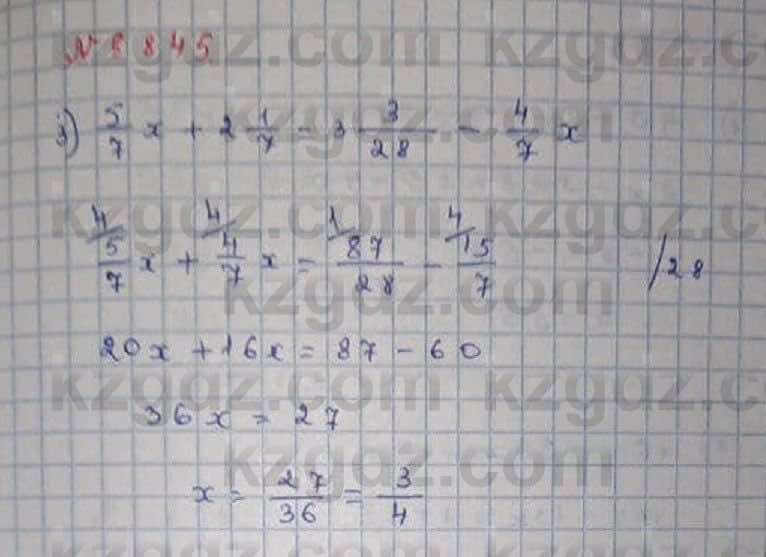 № 845
3) 5/7 x + 2 1/7 = 3 3/28 - 4/7 x
4/ 5/7 x + 4/ 4/7 x = 1/ 87/28 - 4/ 15/7 /28
20x + 16x = 87 - 60
36x = 27
x = 27/36 = 3/4
kzgdz.com